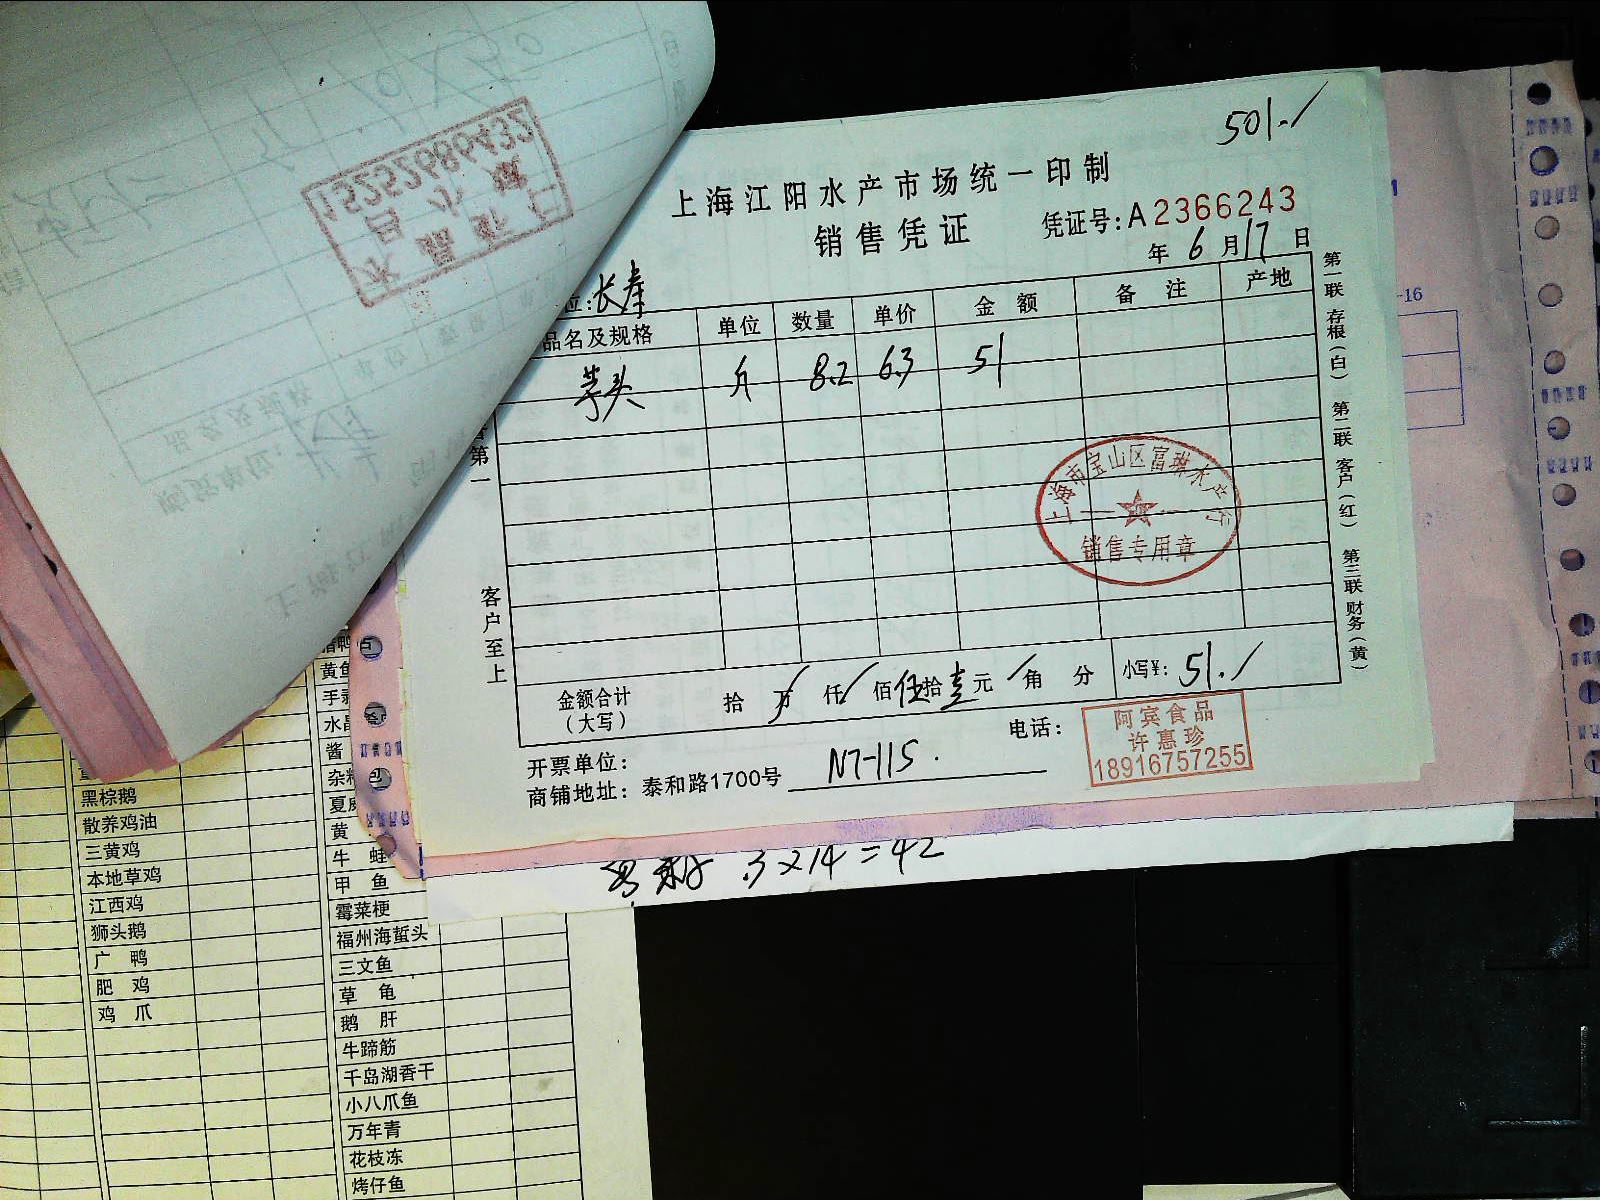 501./
上海江阳水产市场统一印制
销售凭证
凭证号:A2366243
年 6 月 17 日
位:长寿
品名及规格 单位 数量 单价 金额 备注 产地
芋头 斤 8.2 6.3 51
第一
客户至上
第一联 存根(白) 第二联 客户(红) 第三联 财务(黄)
上海市宝山区富琳水产行
销售专用章
金额合计(大写) 拾 万 仟 佰 伍拾 壹元 角 分 小写¥: 51./
开票单位:
电话:
商铺地址: 泰和路1700号 N7-115.
阿宾食品
许惠珍
18916757255
-16
15252686432
3x14=42
黑棕鹅
散养鸡油
三黄鸡
本地草鸡
江西鸡
狮头鹅
广鸭
肥鸡
鸡爪
黄鱼
手剥
水晶
酱
杂粮包
夏威
黄
牛蛙
甲鱼
霉菜梗
福州海蜇头
三文鱼
草龟
鹅肝
牛蹄筋
千岛湖香干
小八爪鱼
万年青
花枝冻
烤仔鱼